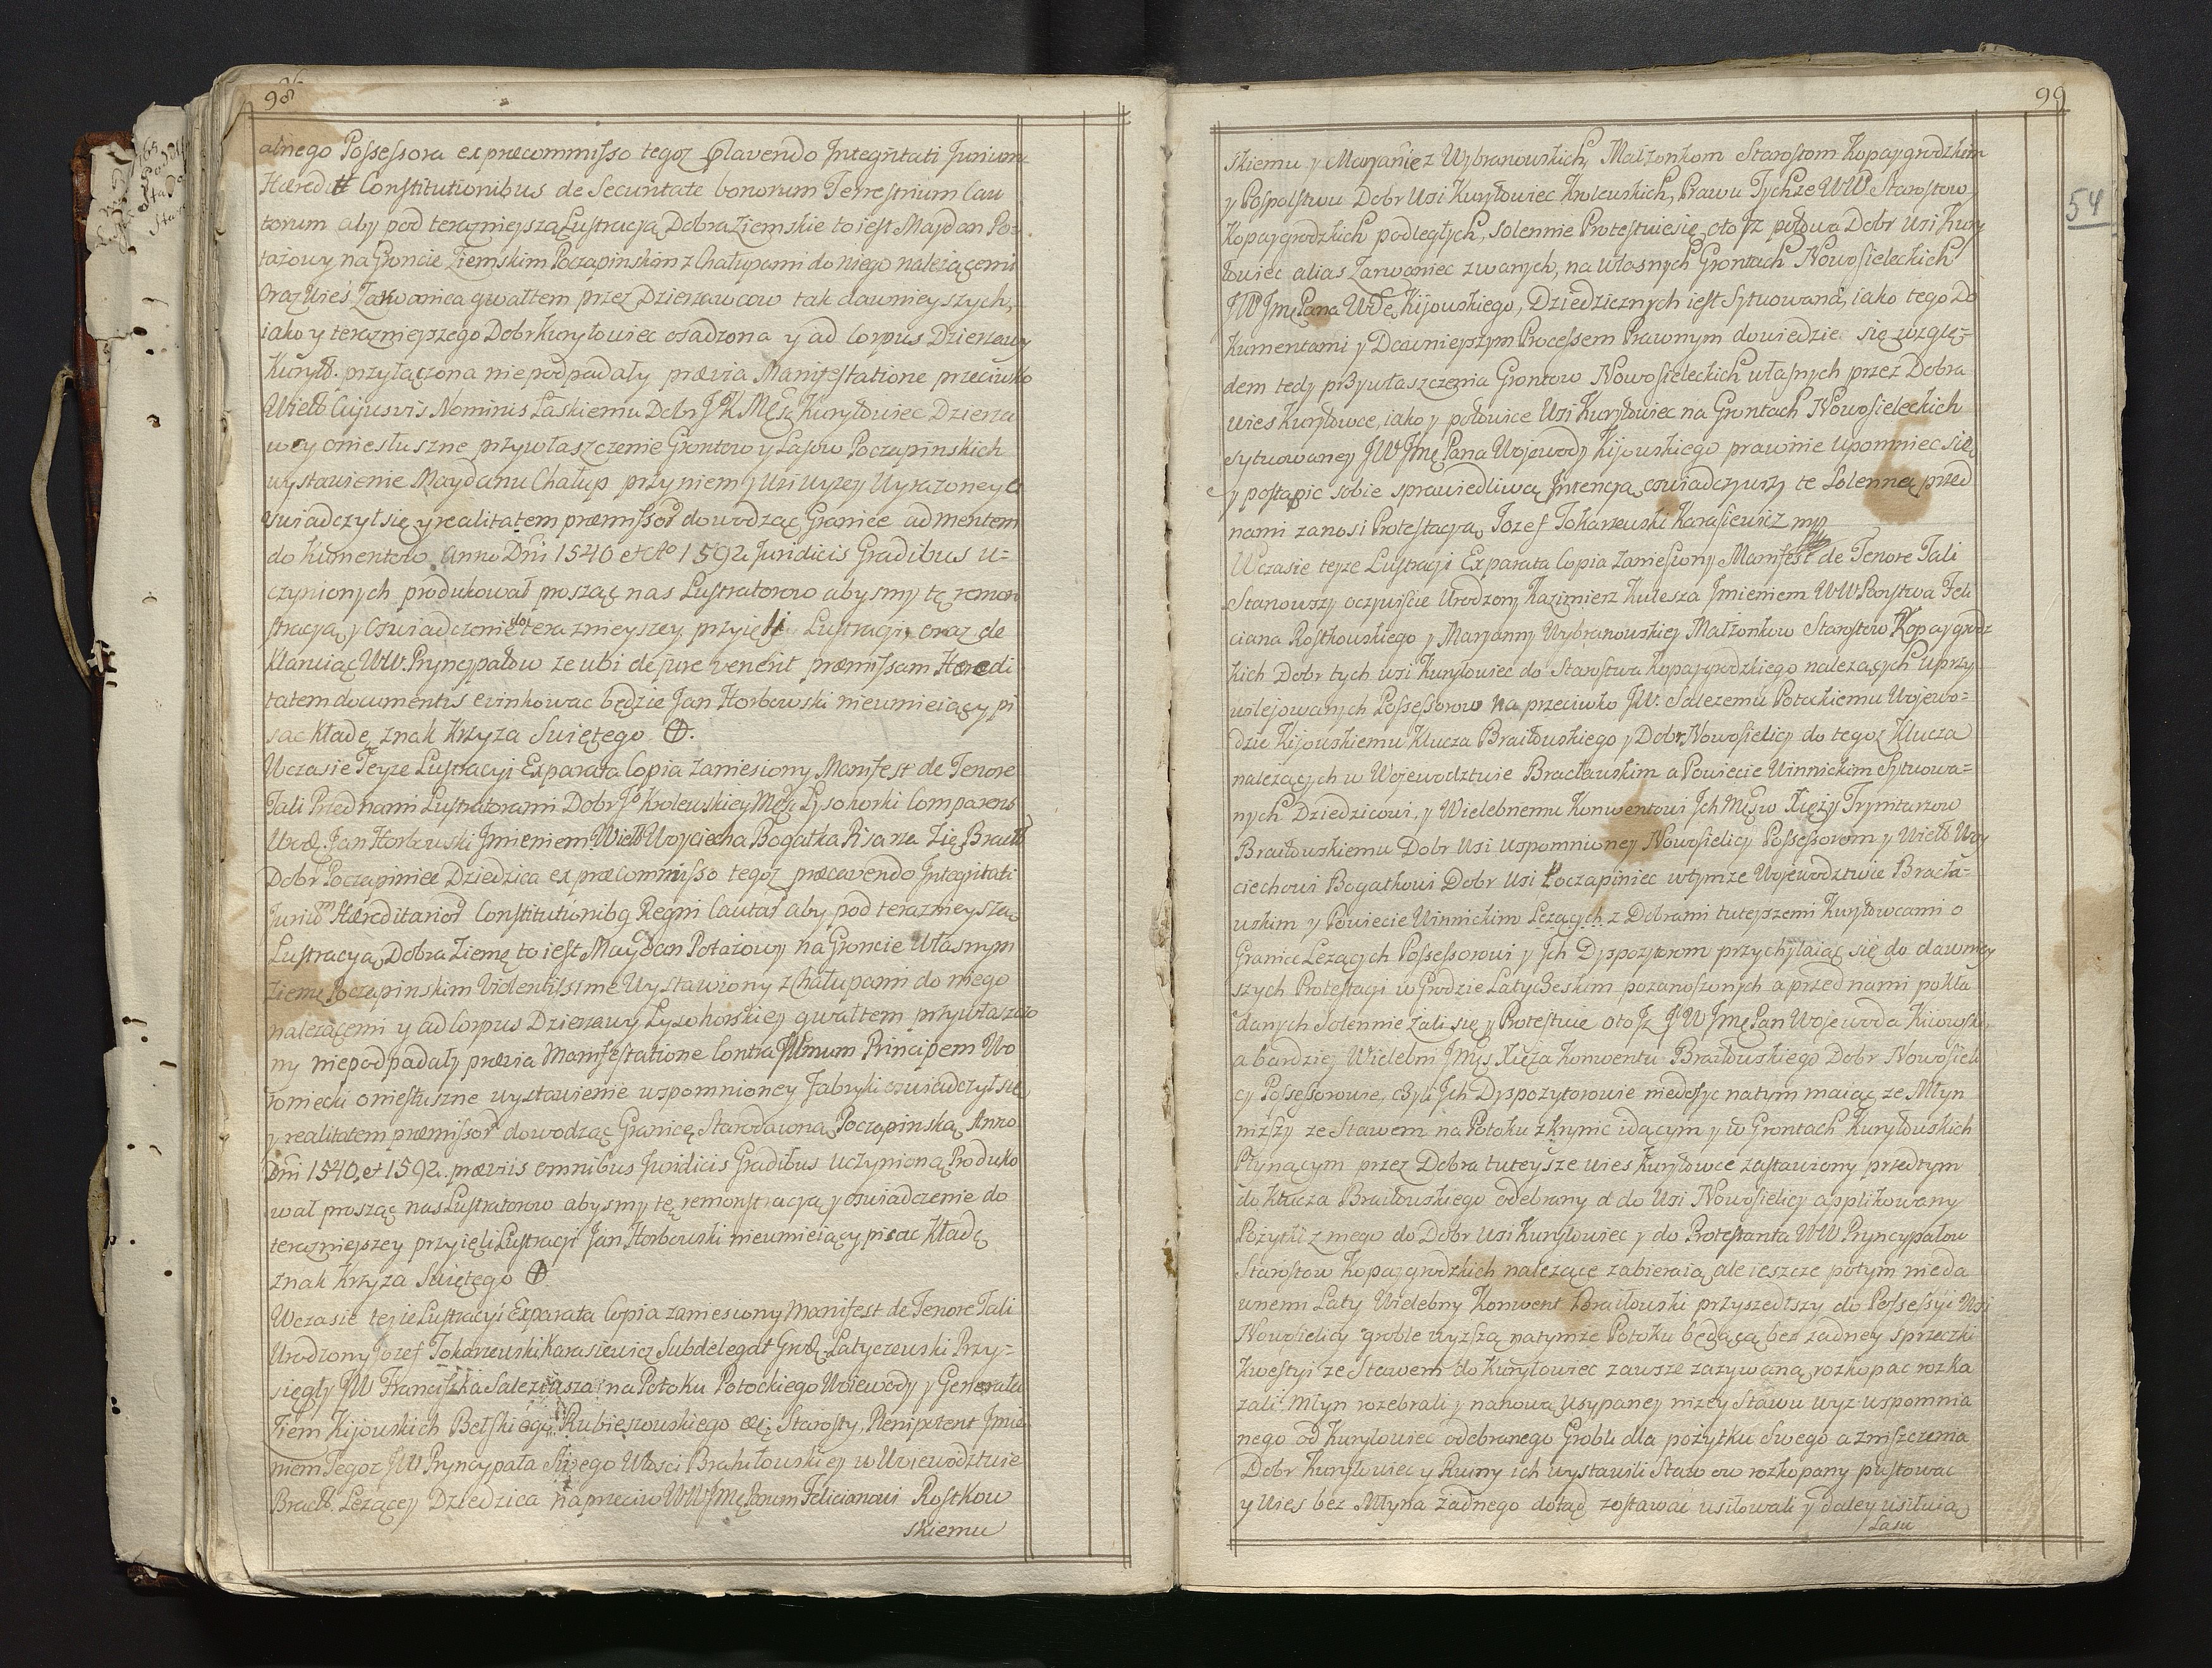 98
alnego Possessora ex præcommisso tegoz Præcavendo Integritati Jurium
Hæredit Constitutionibus de Securitate bonorum Terrestrium Cau
torum aby pod terazniejszą Lustracją Dobra Ziemskie to iest Majdan Po=
tażowy na Groncie Ziemskim Poczapinskim z Chałupami do niego nalezącemi
Oraz Wieś Zarwanica gwałtem przez Dzierzawcow tak dawnieyszych,
iako y terazniejszego Dobr Kuryłowiec osadzona y ad Corpus Dzierzawy
Kuryłł. przyłączona niepodpadały prævia Manifestatione przeciwko
Wielł Cujusvis Nominis Laskiemu Dobr J K Mści Kuryłowiec Dzierza
wcy oniesłuszne przywłaszczenie Grontow y Lasow Poczapinskich
wystawienie Maydanu Chałup przy niem y Wsi wyzey Wyrazoney o
swiadczył się y realitatem præmissor dowodząc Granice ad mentem
dokumentow Anno Dni 1540 et Ao 1592 Juridicis Gradibus u=
czynionych produkował prosząc nas Lustratorow abysmy tę remon
stracyą y Oswiadczenie do terazniejszey przyięli Lustracyi, oraz de
klaruiąc WW. Pryncypałow ze ubi de jure venerit præmissam Hæredi
tatem documentis ewinkowac będzie Jan Horbowski nieumieiący pi
sac Kładę znak Krzyza Swiętego ⊕.
Wczasie Teyze Lustracyi Exparata Copia zaniesiony Manifest de Tenore
Tali Przed nami Lustratorami Dobr Jo Krolewskiey Mści Łysohorki Comparens
Urodz. Jan Horbowski Jmieniem Wielł Woyciecha Bogatka Pisarza Zię Bracł
Dobr Poczapiniec Dziedzica ex præcommisso tegoz præcavendo Integritati
Jurium Hæreditarior Constitutionibq Regni Cautar aby pod terazniejszą
Lustracyą Dobra Ziemę to iest Maydan Potażowy na Groncie Własnym
Ziemę Poczapinskim Violentissime Wystawiony z Chałupami do niego
nalezącemi y ad Corpus Dzierzawy Łysohorskiej gwałtem przywłaszczo
ny niepodpadały prævia Manifestatione Contra Jllmum Principem Wo
roniecki oniesłuszne wystawienie wspomnioney Fabryki oswiadczył się
y realitatem præmissor dowodząc Granicę Starodawną Poczapinską Anno
Dni 1540, et 1592. præviis omnibus Juridicis Gradibus Uczynioną Produko
wał prosząc nas Lustratorow abysmy tę remonstracyą y oswiadczenie do
terazniejszey przyięli Lustracyi Jan Horbowski nieumieiący pisac Kładę
znak Krzyza Swiętego ⊕.
Wczasie tejze Lustracyi Exparata Copia zaniesiony Manifest de Tenore Tali
Urodzony Jozef Tokarzewski Karasiewicz Subdelegat Grodz. Latyczewski Przy=
sięgły JW Franciszka Salezego na Potoku Potockiego Wojewody y Generała
Ziem Kijowskich Bełskiego Rubieszowskiego etc. Starosty, Plenipotent Jmie
niem Tegoz JW Pryncypała Swego Włosci Brahiłowskiej w Wojewodztwie
Bracł. Lezącej Dziedzica naprzeciw WW Jmę Panom Felicianowi Rostkow
skiemu
99
54
skiemu y Maryanie z Wybranowskich Małzonkom Starostom Kopajgrodzkim
y Pospolstwu Dobr Wsi Kuryłowiec Krolewskich, Prawu Tychze WW Starostow
Kopajgrodzkich podległych, Solennie Protestuie się, oto Jz połowa Dobr Wsi Kury
łowiec alias Zarwaniec zwanych, na własnych Grontach Nowosieleckich
JW Jmę Pana Wdę Kijowskiego, Dziedzicznych iest Sytuowana, iako tego Do
kumentami y Dawniejszym Processem Prawnym dowiedzie się wzglę=
dem tedy przywłaszczenia Grontow Nowosieleckich własnych przez Dobra
wies Kuryłowce, iako y połowice Wsi Kuryłowiec na Grontach Nowosieleckich
sytuowanej JW Jmę Pana Wojewody Kijowskiego prawnie upomniec się
y postąpic sobie sprawiedliwą Jntencją oswiadczywszy te Solenną przed
nami zanosi Protestacyą Jozef Tokarzewski Karasiewicz mp
Wczasie tejze Lustracji Exparata Copia Zaniesiony Manifest de Tenore Tali
Stanowszy oczywiście Urodzony Kazimierz Kulesza Jmieniem WW Państwa Feli
ciana Rostkowskiego y Maryanny Wybranowskiej Małzonkow Starostow Kopajgrodz
kich Dobr tych wsi Kuryłowiec do Starostwa Kopajgrodzkiego nalezących Uprzy
wilejowanych Possessorow na przeciwko JW. Salezemu Potockiemu Wojewo=
dzie Kijowskiemu Klucza Braiłowskiego y Dobr Nowosielicy do tegoz Klucza
nalezących w Wojewodztwie Bracławskim a Powiecie Winnickim Sytuowa=
nych Dziedzicowi, y Wielebnemu Konwentowi Jch Mściw Xięzy Trynitarzow
Braiłowskiemu Dobr Wsi wspomnionej Nowosielicy Possessorom y Wielł Woy
ciechowi Bogatkowi Dobr Wsi Poczapiniec wtymze Wojewodztwie Bracła=
wskim y Powiecie Winnickim Lezących z Dobrami tutejszemi Kuryłowcami o
Granice Lezących Possessorowi y Jch Dyspozytorom przychylaiąc się do dawniey
szych Protestacji w Grodzie Latyczeskim pozanoszonych a przed nami pokła
danych Solennie Zali się y Protestuie oto Jz JW Jmę Pan Wojewoda Kijowski,
a bardziej Wielebni Jmęs Xięza Konwentu Braiłowskiego Dobr Nowosieli
cy Possessorowie, czyli Jch Dyspozytorowie niedosyc natym maiąc ze Młyn
nizszy ze Stawem na Potoku z krynic idącym y w Grontach Kuryłowskich
Płynącym przez Dobra tuteysze wies Kuryłowce zastawiony przedtym
do Klucza Braiłowskiego odebrany a do Wsi Nowosielicy applikowany
Pozytki z niego do Dobr Wsi Kuryłowiec y do Protestanta WW Pryncypałow
Starostow Kopajgrodzkich nalezące zabieraią ale ieszcze potym nieda
wnemi Laty Wielebny Konwent Braiłowski przyszedłszy do Possessyi Wsi
Nowosielicy groble wyzszą natymze Potoku będącą bez zadney sprzeczki
kwestyi ze Stawem do Kuryłowiec zawsze zazywaną, rozkopac rozka
zali Młyn rozebrali y nanową usypaney nizey Stawu wyz wspomnia
nego od Kuryłowiec odebranego Grobli dla pozytku Swego a zniszczenia
Dobr Kuryłowiec y Ruiny ich wystawili Staw ow rozkopany pustowac
y Wies bez Młyna zadnego dotąd zostawac usiłowali y daley usiłuią
Lasu